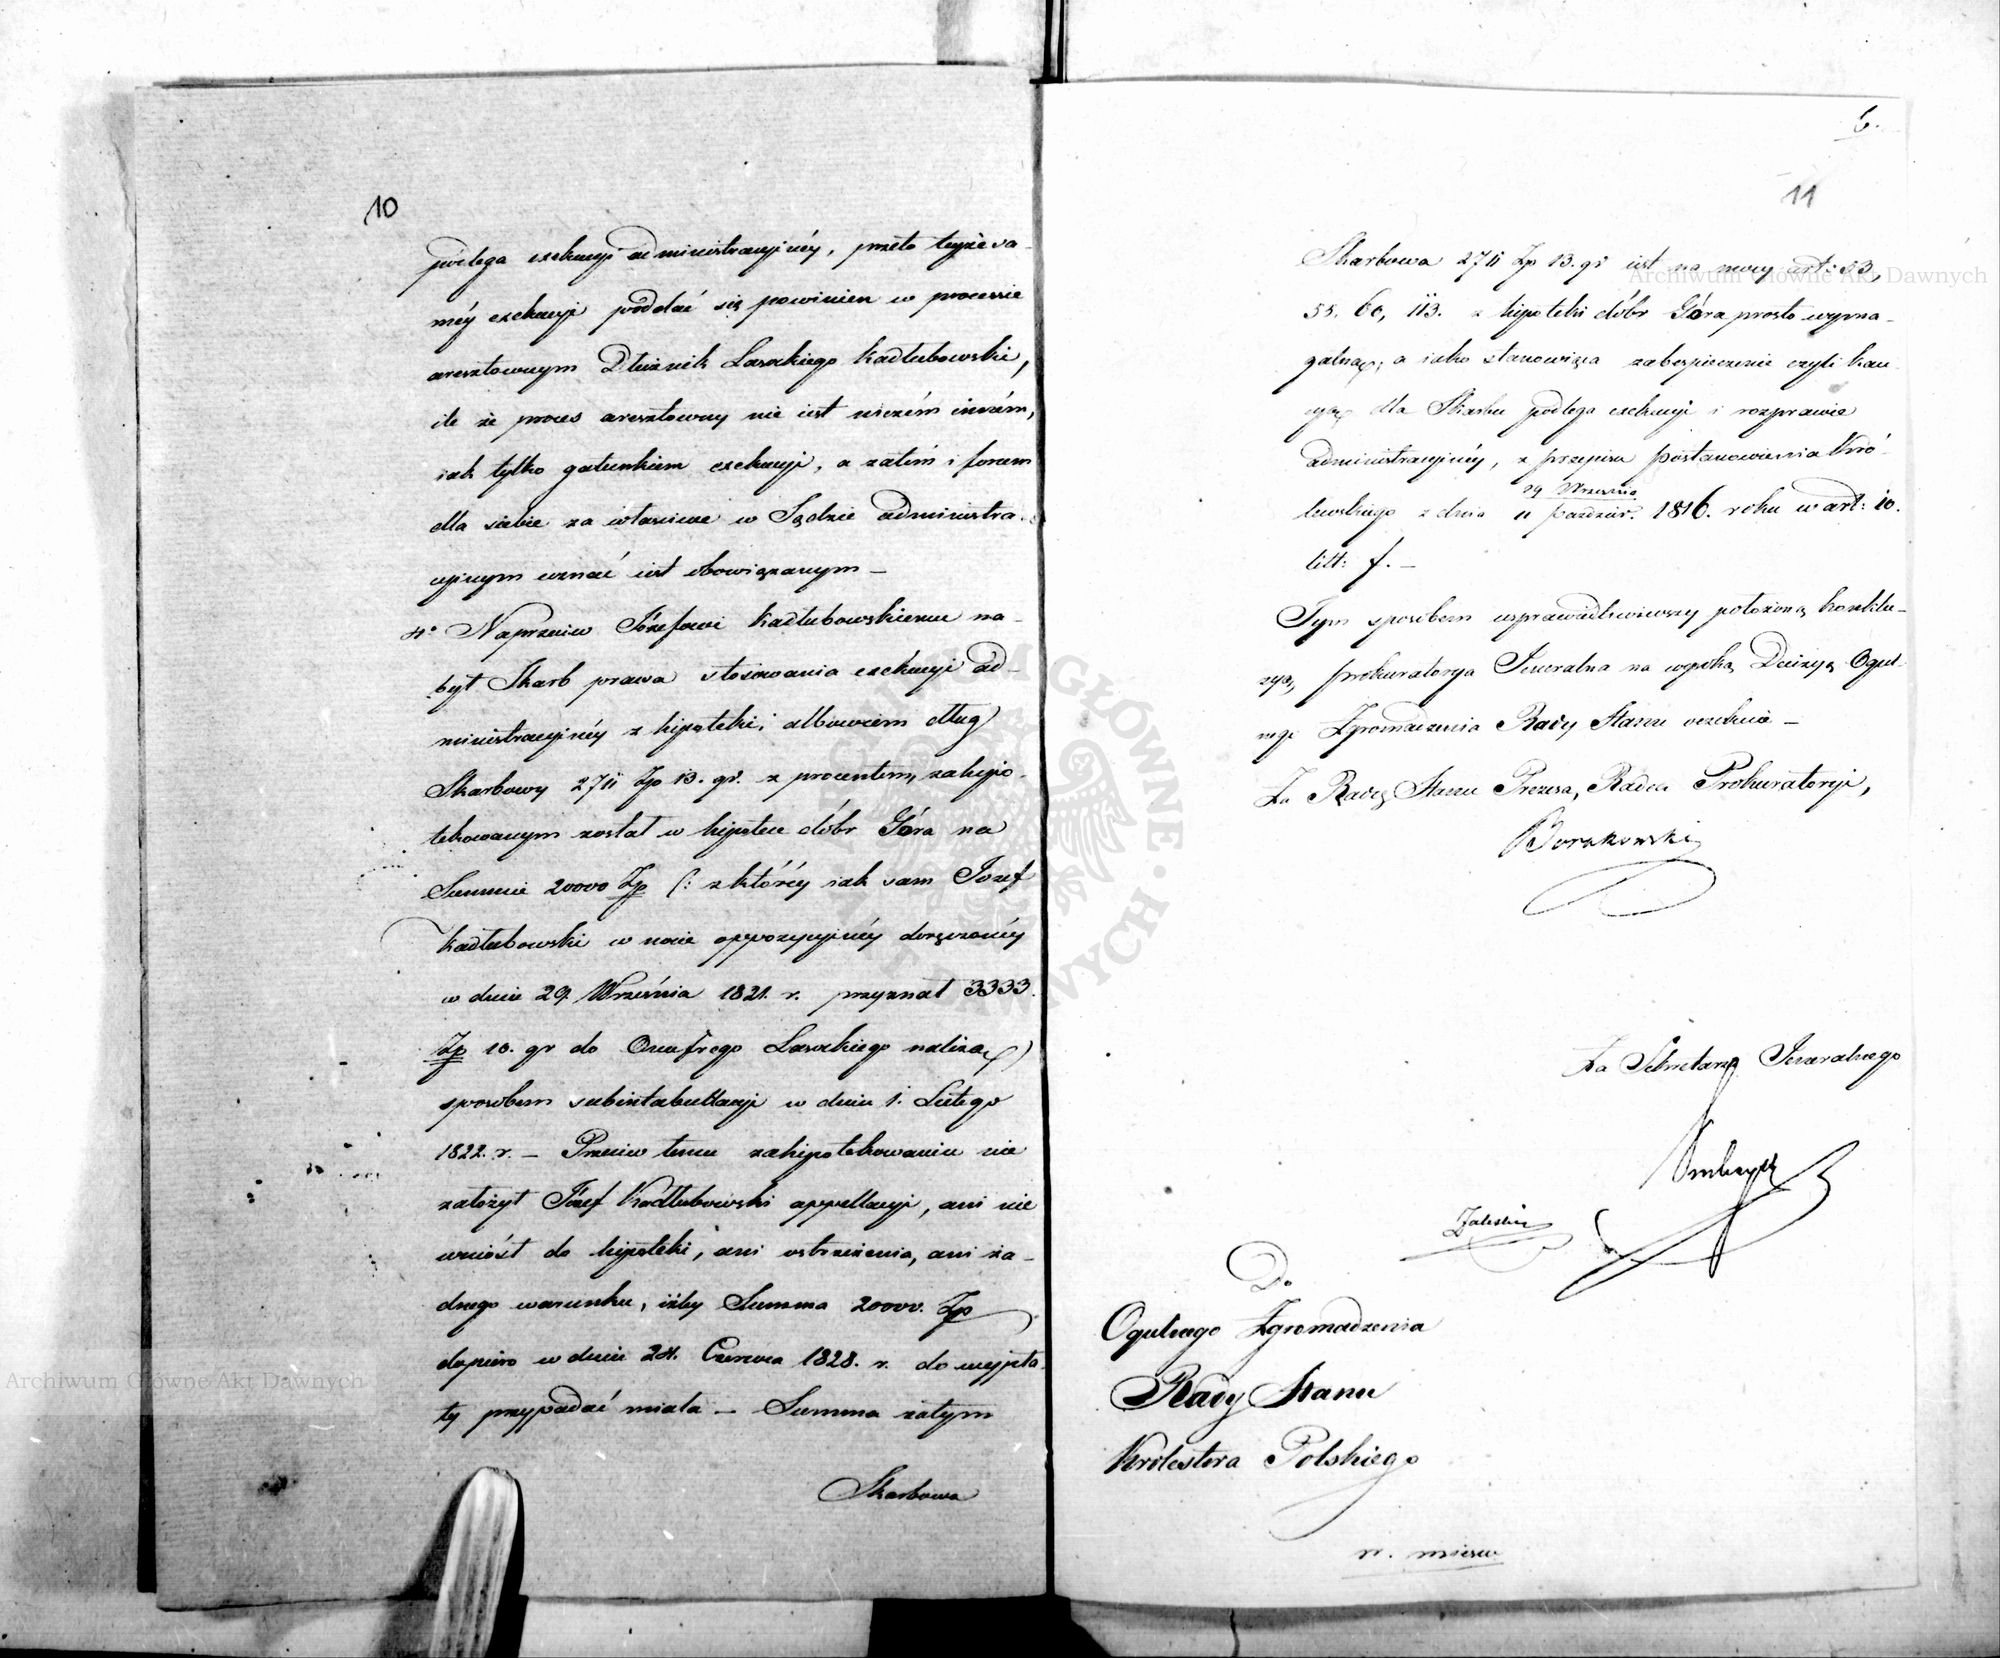 10
podlega exekucyi administracyinéy, przeto teyże sa-
méy exekucyi poddać się powinien w processie
aresztownym Dłużnik Lasockiego Kadłubowski,
ile że proces aresztowny nie iest niczém inném,
iak tylko gatunkiem exekucyi, a zatém i forum
dla siebie za właściwe w Sądzie administra-
cyinym uznać iest obowiązanym —
4o Naprzeciw Józefowi Kadłubowskiemu na-
był Skarb prawa stosowania exekucyi ad-
ministracyinéy z hipoteki; albowiem dług
Skarbowy 2711 Zp 13. gr. z procentem, zahipo-
tekowanym został w hipotece dóbr Góra na
Summie 20000 Zp (: z któréy iak sam Jozef
Kadłubowski w nocie oppozycyinéy doręczonéy
w dniu 29 Września 1821. r. przyznał 3333.
Zp 10. gr do Onufrego Lasockiego należą)
sposobem subintabulacyi w dniu 1. Lutego
1822. r. — Przeciw temu zahipotekowaniu nie
założył Józef Kadłubowski appellacyi, ani nie
wniósł do hipoteki, ani ostrzeżenia, ani ża-
dnego warunku, iżby Summa 20000. Zp
dopiero w dniu 24. Czerwca 1828. r. do wypła-
ty przypadać miała — Summa zatym
Skarbowa
6.
11
Skarbowa 2711 Zp 13. gr iest na mocy art: 53,
55. 60, 113. z hipoteki dóbr Góra prosto wyma-
galną; a iako stanowiąca zabezpieczenie czyli kau-
cyą dla Skarbu podlega exekucyi i rozprawie
administracyinéy, z przepisu Postanowienia Kró-
29 Września
lewskiego z dnia 11 Paździer. 1816. roku w art: 10.
litt: f. —
Tym sposobem usprawiedliwiwszy położoną konklu-
zyą, Prokuratorya Jeneralna na wysoką Decizyą Ogul-
nego Zgromadzenia Rady Stanu oczekuie —
Za Radcę Stanu Prezesa, Radca Prokuratoryi,
Borakowski
Za Sekretarza Jeneralnego
Zaleski
Do
Ogulnego Zgromadzenia
Rady Stanu
Królestwa Polskiego
w. miescu
Archiwum Główne Akt Dawnych
Archiwum Główne Akt Dawnych
ARCHIWUM GŁÓWNE AKT DAWNYCH